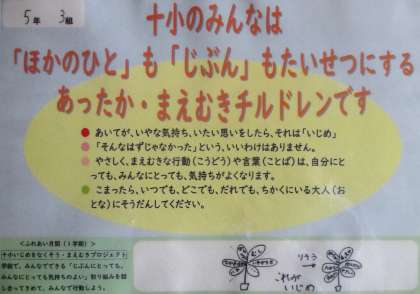 5年 3組
十小のみんなは
「ほかのひと」も「じぶん」もたいせつにする
あったか・まえむきチルドレンです
● あいてが、いやな気持ち、いたい思いをしたら、それは「いじめ」
● 「そんなはずじゃなかった」という、いいわけはありません。
● やさしく、まえむきな行動(こうどう)や言葉(ことば)は、自分にとっても、みんなにとっても、気持ちがよくなります。
● こまったら、いつでも、どこでも、だれでも、ちかくにいる大人(おとな)にそうだんしてください。
<ふれあい月間(1学期)>
十小いじめをなくそう・まえむきプロジェクト
学級で、みんなでできる「じぶんにとっても、
みんなにとっても気持ちのよい」取り組みを話
し合ってきめて、みんなで行動しよう。
これが
いじめ
りそう